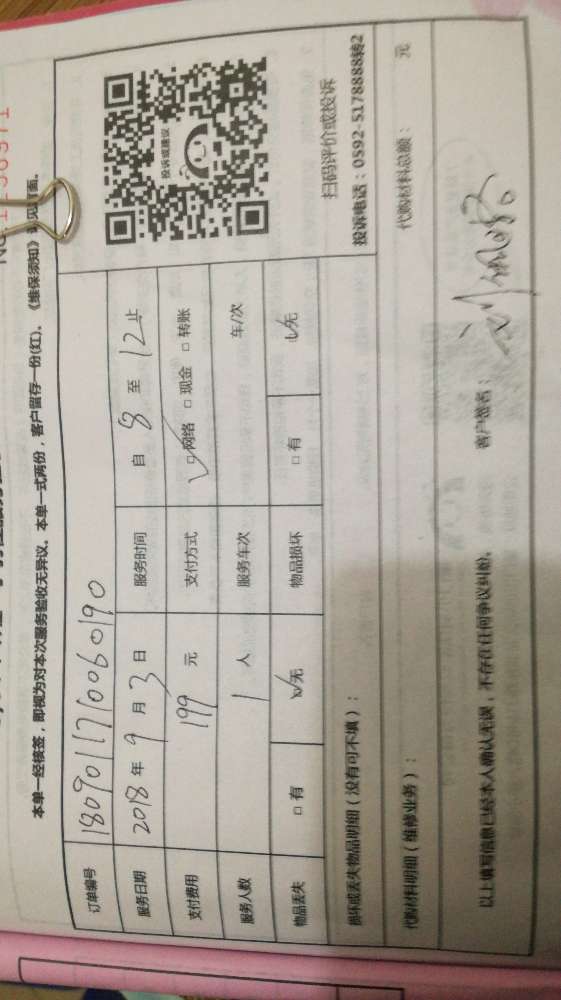 本单一经核签，即视为对本次服务验收无异议。本单一式两份，客户留存一份(红)，《维保须知》
订单编号 1809011710060190
服务日期 2018年9月3日 服务时间 自8至12止
支付费用 199元 支付方式 ☑网络 □现金 □转账
服务人数 1人 服务车次 车/次
物品丢失 □有 ☑无 物品损坏 □有 ☑无
投诉或建议
扫码评价或投诉
投诉电话：0592-5178888转2
损坏或丢失物品明细（没有可不填）：
代购材料明细（维修业务）： 代购材料总额： 元
以上填写信息已经本人确认无误，不存在任何争议纠纷。 客户签名：